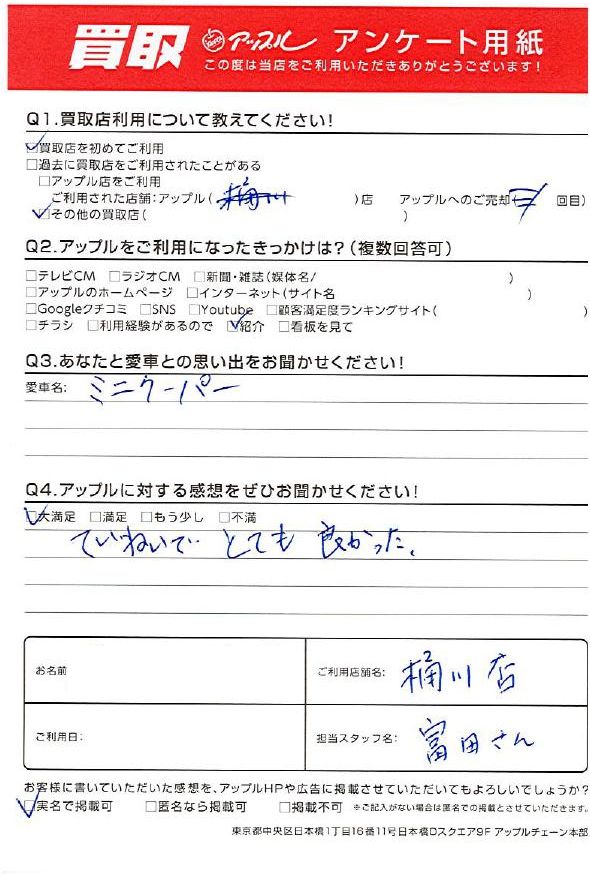 買取 Apple アップル アンケート用紙
この度は当店をご利用いただきありがとうございます!
Q1.買取店利用について教えてください!
☑買取店を初めてご利用
□過去に買取店をご利用されたことがある
□アップル店をご利用
ご利用された店舗:アップル( 桶川 )店 アップルへのご売却( 回目)
☑その他の買取店( )
Q2.アップルをご利用になったきっかけは?(複数回答可)
□テレビCM □ラジオCM □新聞・雑誌(媒体名/ )
□アップルのホームページ □インターネット(サイト名 )
□Googleクチコミ □SNS □Youtube □顧客満足度ランキングサイト( )
□チラシ □利用経験があるので ☑紹介 □看板を見て
Q3.あなたと愛車との思い出をお聞かせください!
愛車名: ミニクーパー
Q4.アップルに対する感想をぜひお聞かせください!
☑大満足 □満足 □もう少し □不満
ていねいで とても 良かった。
お名前 ご利用店舗名: 桶川店
ご利用日: 担当スタッフ名: 富田さん
お客様に書いていただいた感想を、アップルHPや広告に掲載させていただいてもよろしいでしょうか?
☑実名で掲載可 □匿名なら掲載可 □掲載不可 ※ご記入がない場合は匿名での掲載とさせていただきます。
東京都中央区日本橋1丁目16番11号日本橋Dスクエア9F アップルチェーン本部